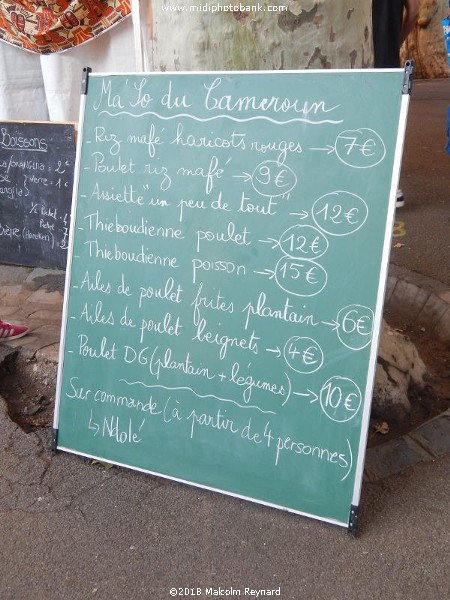 www.midiphotobank.com
Ma'So du Cameroun
- Riz mafé haricots rouges → 7€
- Poulet riz mafé → 9€
- Assiette "un peu de tout" → 12€
- Thieboudienne poulet → 12€
- Thieboudienne poisson → 15€
- Ailes de poulet frites plantain → 6€
- Ailes de poulet beignets → 4€
- Poulet DG (plantain + légumes) → 10€
Sur commande (à partir de 4 personnes)
↳ Ndolé
Boissons
©2018 Malcolm Reynard